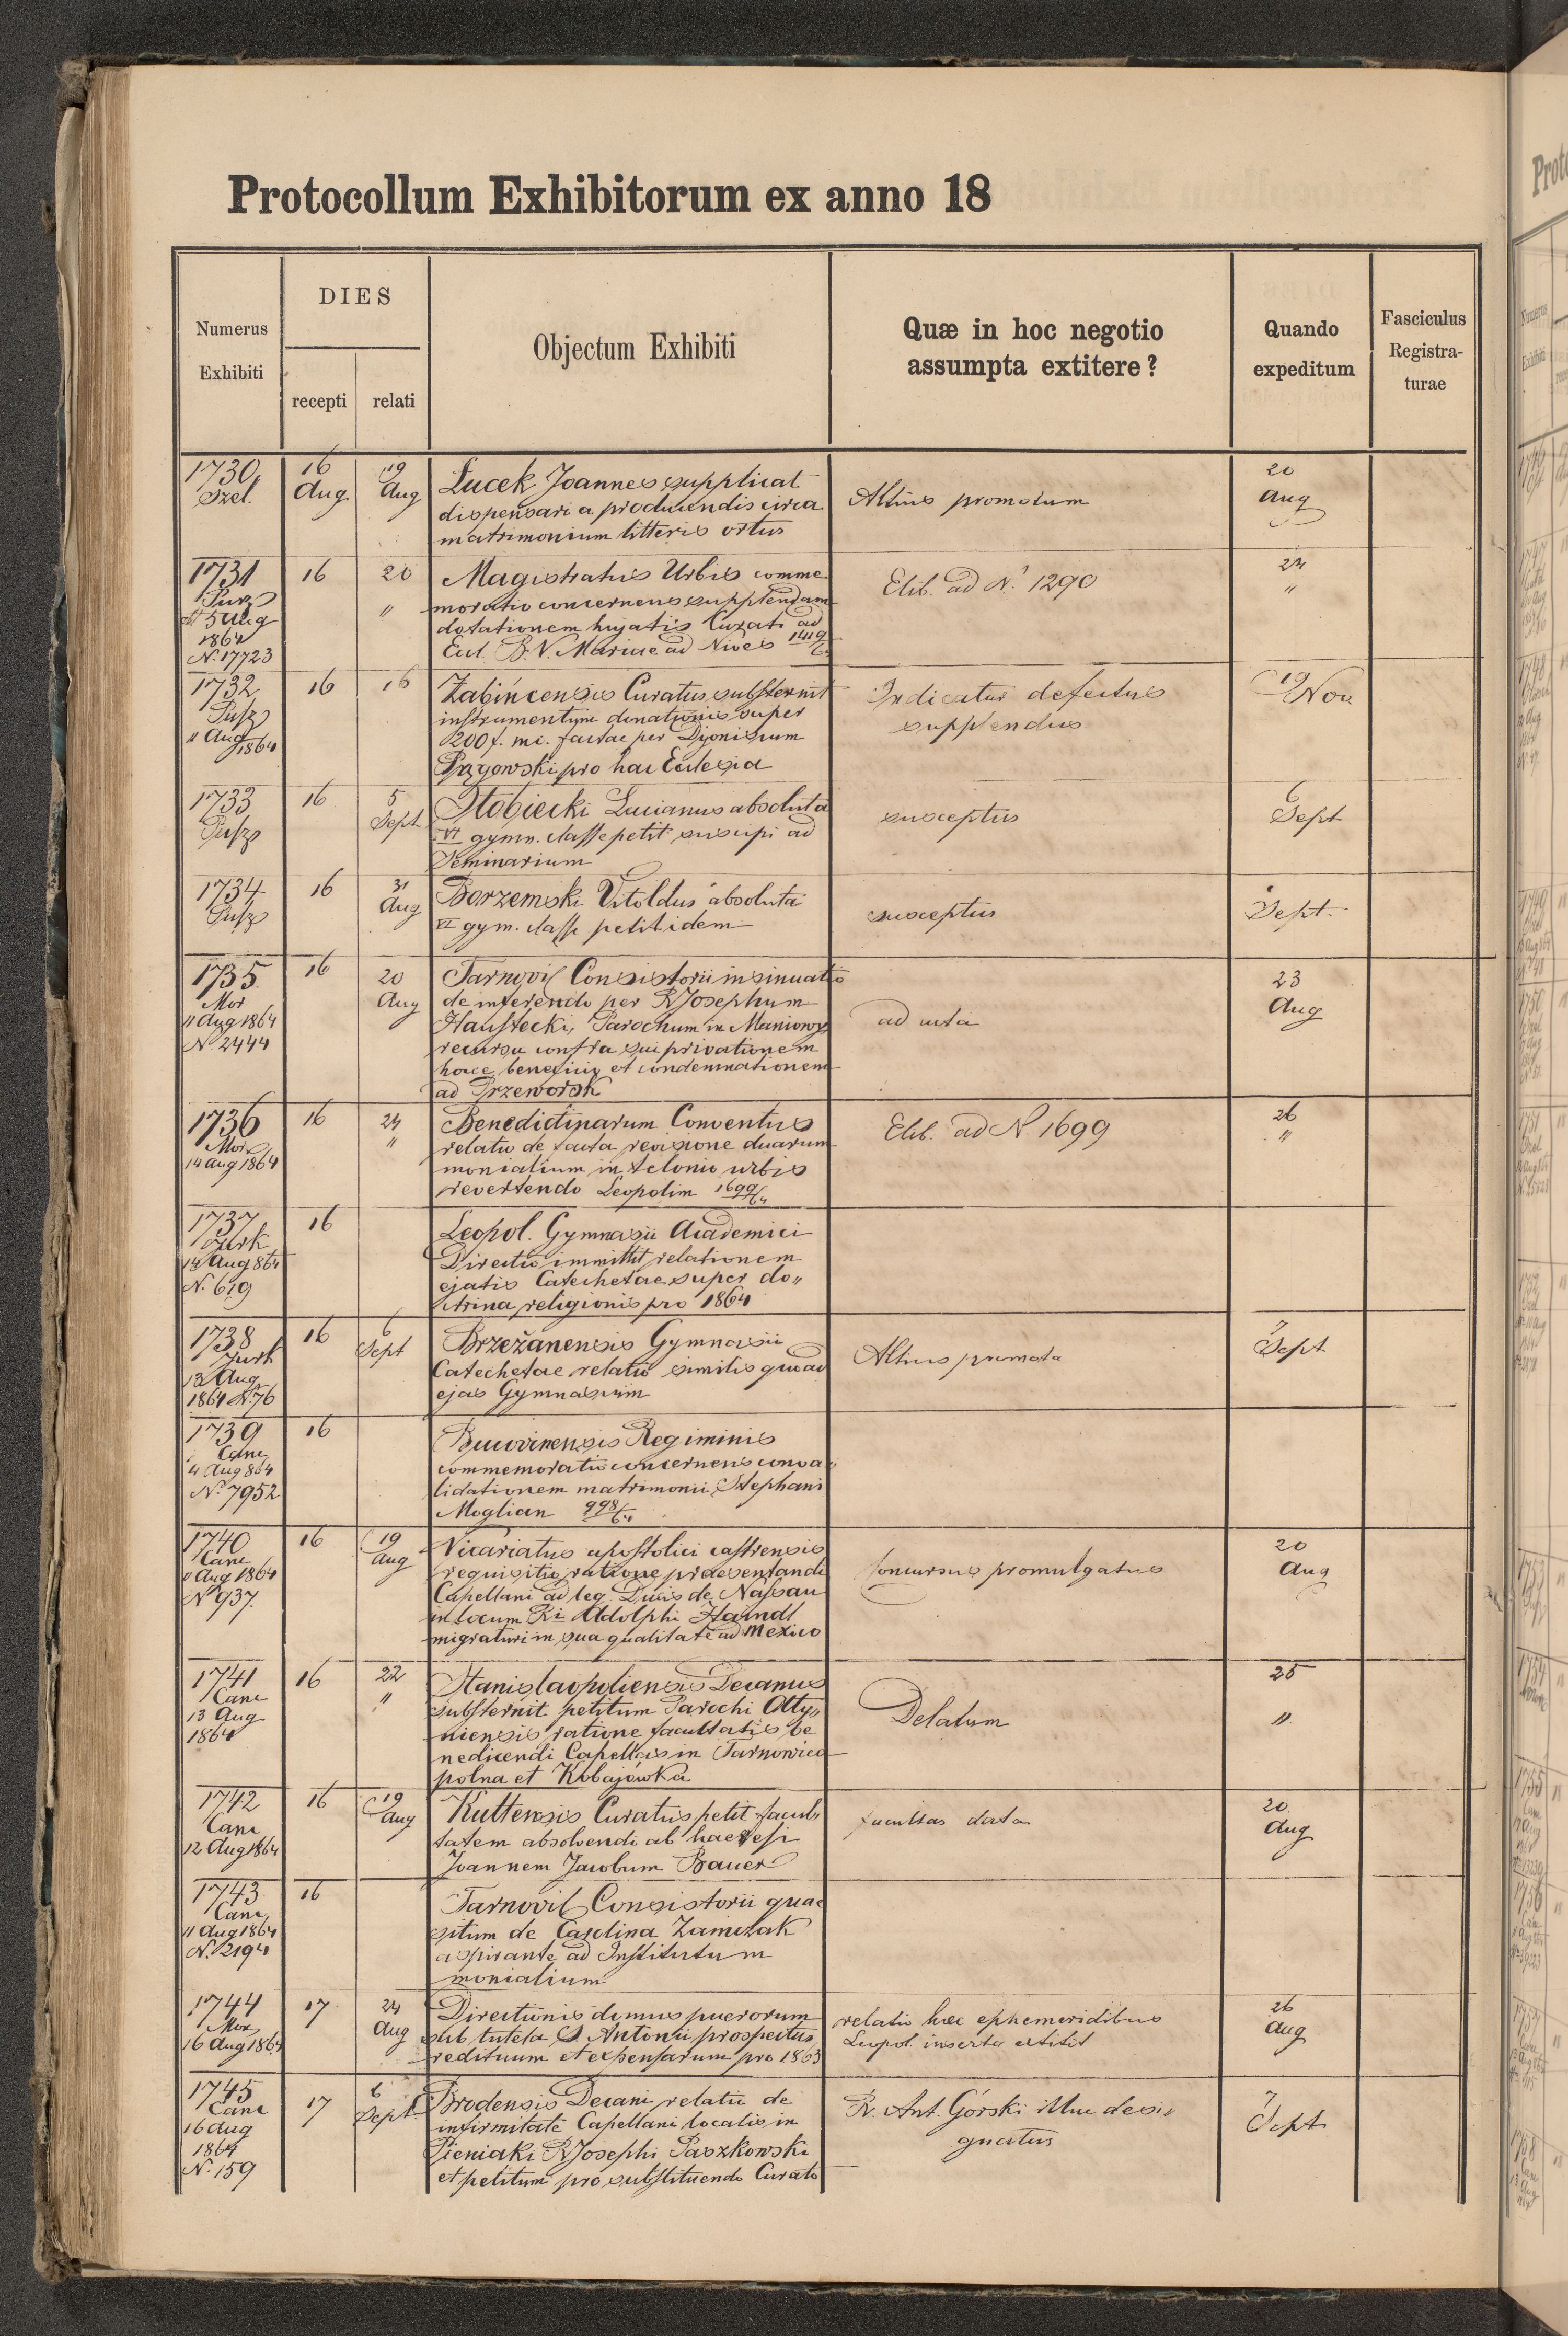 Protocollum Exhibitorum ex anno 18
Numerus
Exhibiti
DIES
recepti
relati
Objectum Exhibiti
Quæ in hoc negotio
assumpta extitere?
Quando
expeditum
Fasciculus
Registra-
turae
1730
Szel.
16
Aug.
19
Aug
Łucek Joannes supplicat
dispensari a producendis circa
matrimonium litteris ortus
Altius promotum
20
Aug
1731
Pusz
5 Aug
1864
N. 17723
16
20
"
Magistratus Urbis comme
moratio concernens supplendam
dotationem hujatis Curati ad
Eccl. B. V. Mariae ad Nives 1419/
Elib. ad N. 1290
"
1732
Pusz
11 Aug
1864
16
16
Żabińcensis Curatus substernit
instrumentum donationis super
200 f. mc. factae per Dyonisium
pro hac Ecclesia
Indicatur defectus
supplendus
19 Nov
1733
Pusz
16
5
Sept
Stobiecki Lucianus absoluta
VI gymn. classe petit suscipi ad
Seminarium
susceptus
6
Sept
1734
Pusz
16
31
Aug
Borzemski Vitoldus absoluta
VI gym. classe petit idem
susceptus
Sept.
1735
Mor
11 Aug 1864
N. 2444
16
20
Aug
Tarnovi Consistorii insinuatio
de inferendo per R. Josephum
Parochum in Maniowy
recursu contra sui privationem
hoce beneficio et condemnationem
ad Przeworsk
ad acta
23
Aug
1736
Mor
14 Aug 1864
16
24
"
Benedictinarum Conventus
relatio de facta revisione duarum
monialium in telonio urbis
revertendo Leopolim 1699/64
Elib. ad N. 1699
26
"
1737
Jurk
14 Aug 864
N. 619
16
Leopol. Gymnasii Academici
Directio immittit relationem
ejatis Catechetae super do„
ctrina religionis pro 1864
1738
Jurk
13 Aug
1864 N. 76
16
6
Sept
Brzežanensis Gymnasii
Catechetae relatio similis quoad
ejas Gymnasium
Altius promota
7
Sept
1739
Canc
4 Aug 864
N. 7952
16
Bucovinensis Regiminis
commemoratio concernens conva
lidationem matrimonii Stephani
Moglian 998/64
1740
Canc
Aug 1864
N. 937
16
19
Aug
Vicariatus apostolici castrensis
requisitio ratione praesentandi
Capellani ad leg. Ducis de Nassau
in locum Ri Adolphi
migraturi in sua qualitate ad Mexico
Concursus promulgatus
20
Aug
1741
Canc
13 Aug
1864
16
22
"
Stanislaopoliensis Decanus
substernit petitum Parochi Otty„
niensis ratione facultatis be
nedicendi Capellas in Tarnowica
polna et Kobajówka
Delatum
25
"
1742
Canc
12 Aug 1864
16
19
Aug
Kuttensis Curatus petit facul„
tatem absolvendi ab haeresi
Joannem Jacobum Bauer
facultas data
20
Aug
1743
Canc
11 Aug 1864
N. 2194
16
Tarnovi Consistorii quae
situm de Carolina Zamczak
aspirante ad Institutum
monialium
1744
Mor
16 Aug 1864
17
24
Aug
Directionis domus puerorum
sub tutela S. Antonii prospectus
redituum et expensarum pro 1863
relatio haec ephemeridibus
Leopol. inserta extitit
26
Aug
1745
Canc
16 Aug
1864
N. 159
17
6
Sept
Brodensis Decani relatio de
infirmitate Capellani localis in
Pieniaki R. Josephi Paszkowski
et petitum pro substituendo Curato
R. Ant. Górski illuc desi„
gnatus
7
Sept